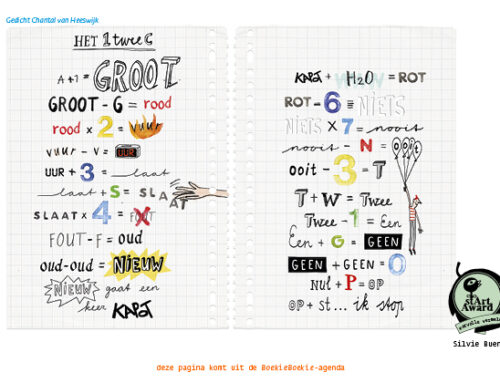 Gedicht Chantal van Heeswijk
HET 1 twee 3
A+1 = GROOT
GROOT - G = rood
rood x 2 = vuur
vuur - v = UUR
UUR + 3 = laat
laat + S = SLAAT
SLAAT x 4 = FOUT
FOUT - F = oud
oud-oud = NIEUW
NIEUW gaat een
keer KAPOT
KAPOT + H2O = ROT
ROT - 6 = NIETS
NIETS x 7 = nooit
nooit - N = ooit
ooit - 3 = T
T + W = Twee
Twee - 1 = Een
Een + G = GEEN
GEEN + GEEN = 0
Nul + P = OP
OP + st... ik stop
stArt
Award
Silvie Buen
deze pagina komt uit de BoekieBoekie-agenda